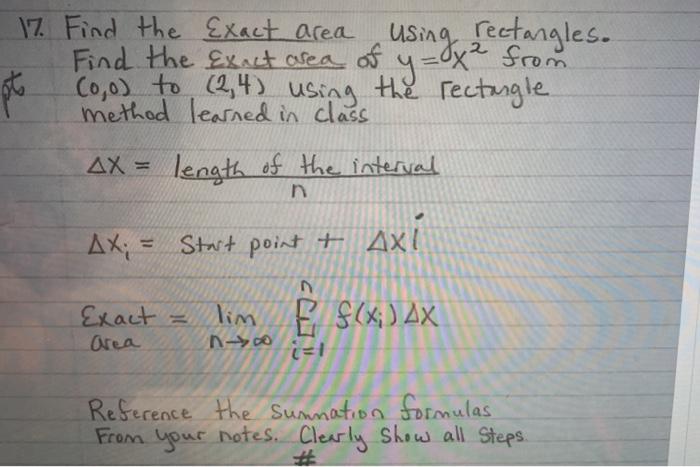 17. Find the Exact area using rectangles.
Find the Exact area of y=x² from
pt (0,0) to (2,4) using the rectangle
method learned in class
Δx = length of the interval
n
Δxᵢ = Start point + Δxi
n
Exact = lim Σ f(xᵢ)Δx
area n→∞ i=1
Reference the summation formulas
From your notes. Clearly Show all Steps
#